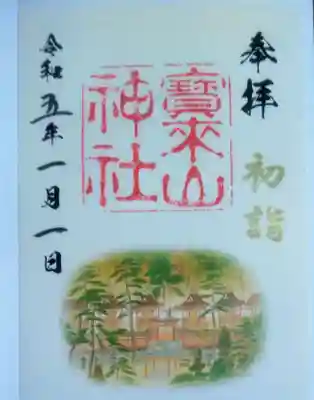 奉拝
初詣
寳来山
神社
令和五年一月一日